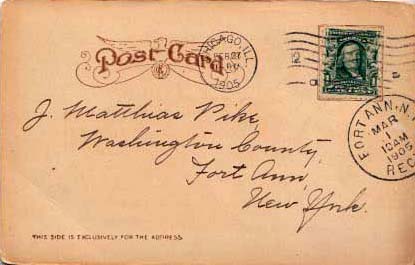 Post Card
CHICAGO, ILL.
FEB 27
1905
J. Matthias Pike
Washington County,
Fort Ann
New York.
FORT ANN, N.Y.
MAR
1
10AM
1905
REC'D
THIS SIDE IS EXCLUSIVELY FOR THE ADDRESS